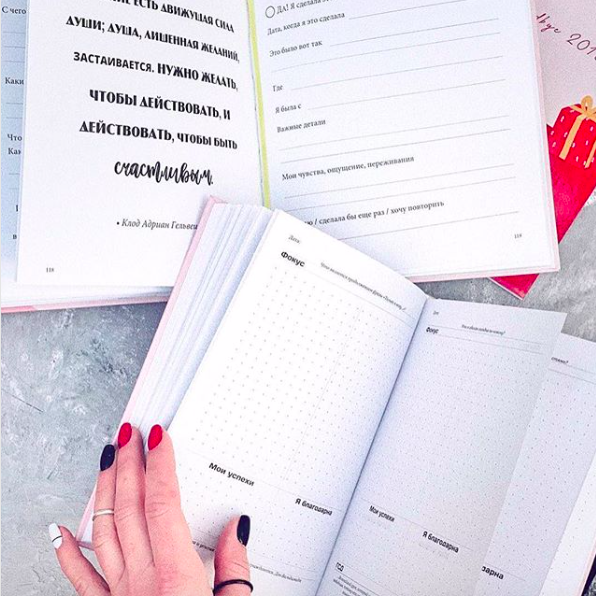 С чего
Каки
Что
Как
в
ЕСТЬ ДВИЖУЩАЯ СИЛА
ДУШИ; ДУША, ЛИШЕННАЯ ЖЕЛАНИЙ,
ЗАСТАИВАЕТСЯ. НУЖНО ЖЕЛАТЬ,
ЧТОБЫ ДЕЙСТВОВАТЬ, И
ДЕЙСТВОВАТЬ, ЧТОБЫ БЫТЬ
счастливым.
• Клод Адриан Гельвец
118
ДА! Я сделала
Дата, когда я это сделала
Это было вот так
Где
Я была с
Важные детали
Мои чувства, ощущение, переживания
/ сделала бы еще раз / хочу повторить
119
2018
Дата:
Фокус
Мои успехи
Я благодарна
Фокус
Мои успехи
Я благодарна
зарна